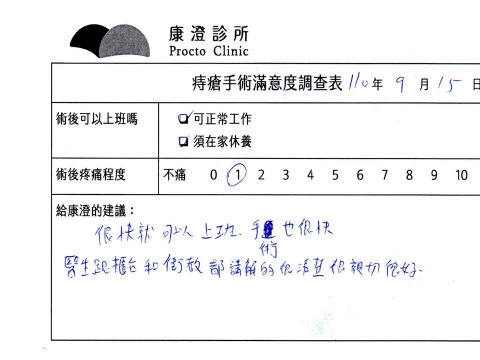 康澄診所
Procto Clinic
痔瘡手術滿意度調查表 110年 9 月 15 日
術後可以上班嗎
可正常工作
須在家休養
術後疼痛程度 不痛 0 1 2 3 4 5 6 7 8 9 10
給康澄的建議:
很快就可以上班、手術也很快
醫生跟櫃台和衛教都講解的很清楚很親切很好.